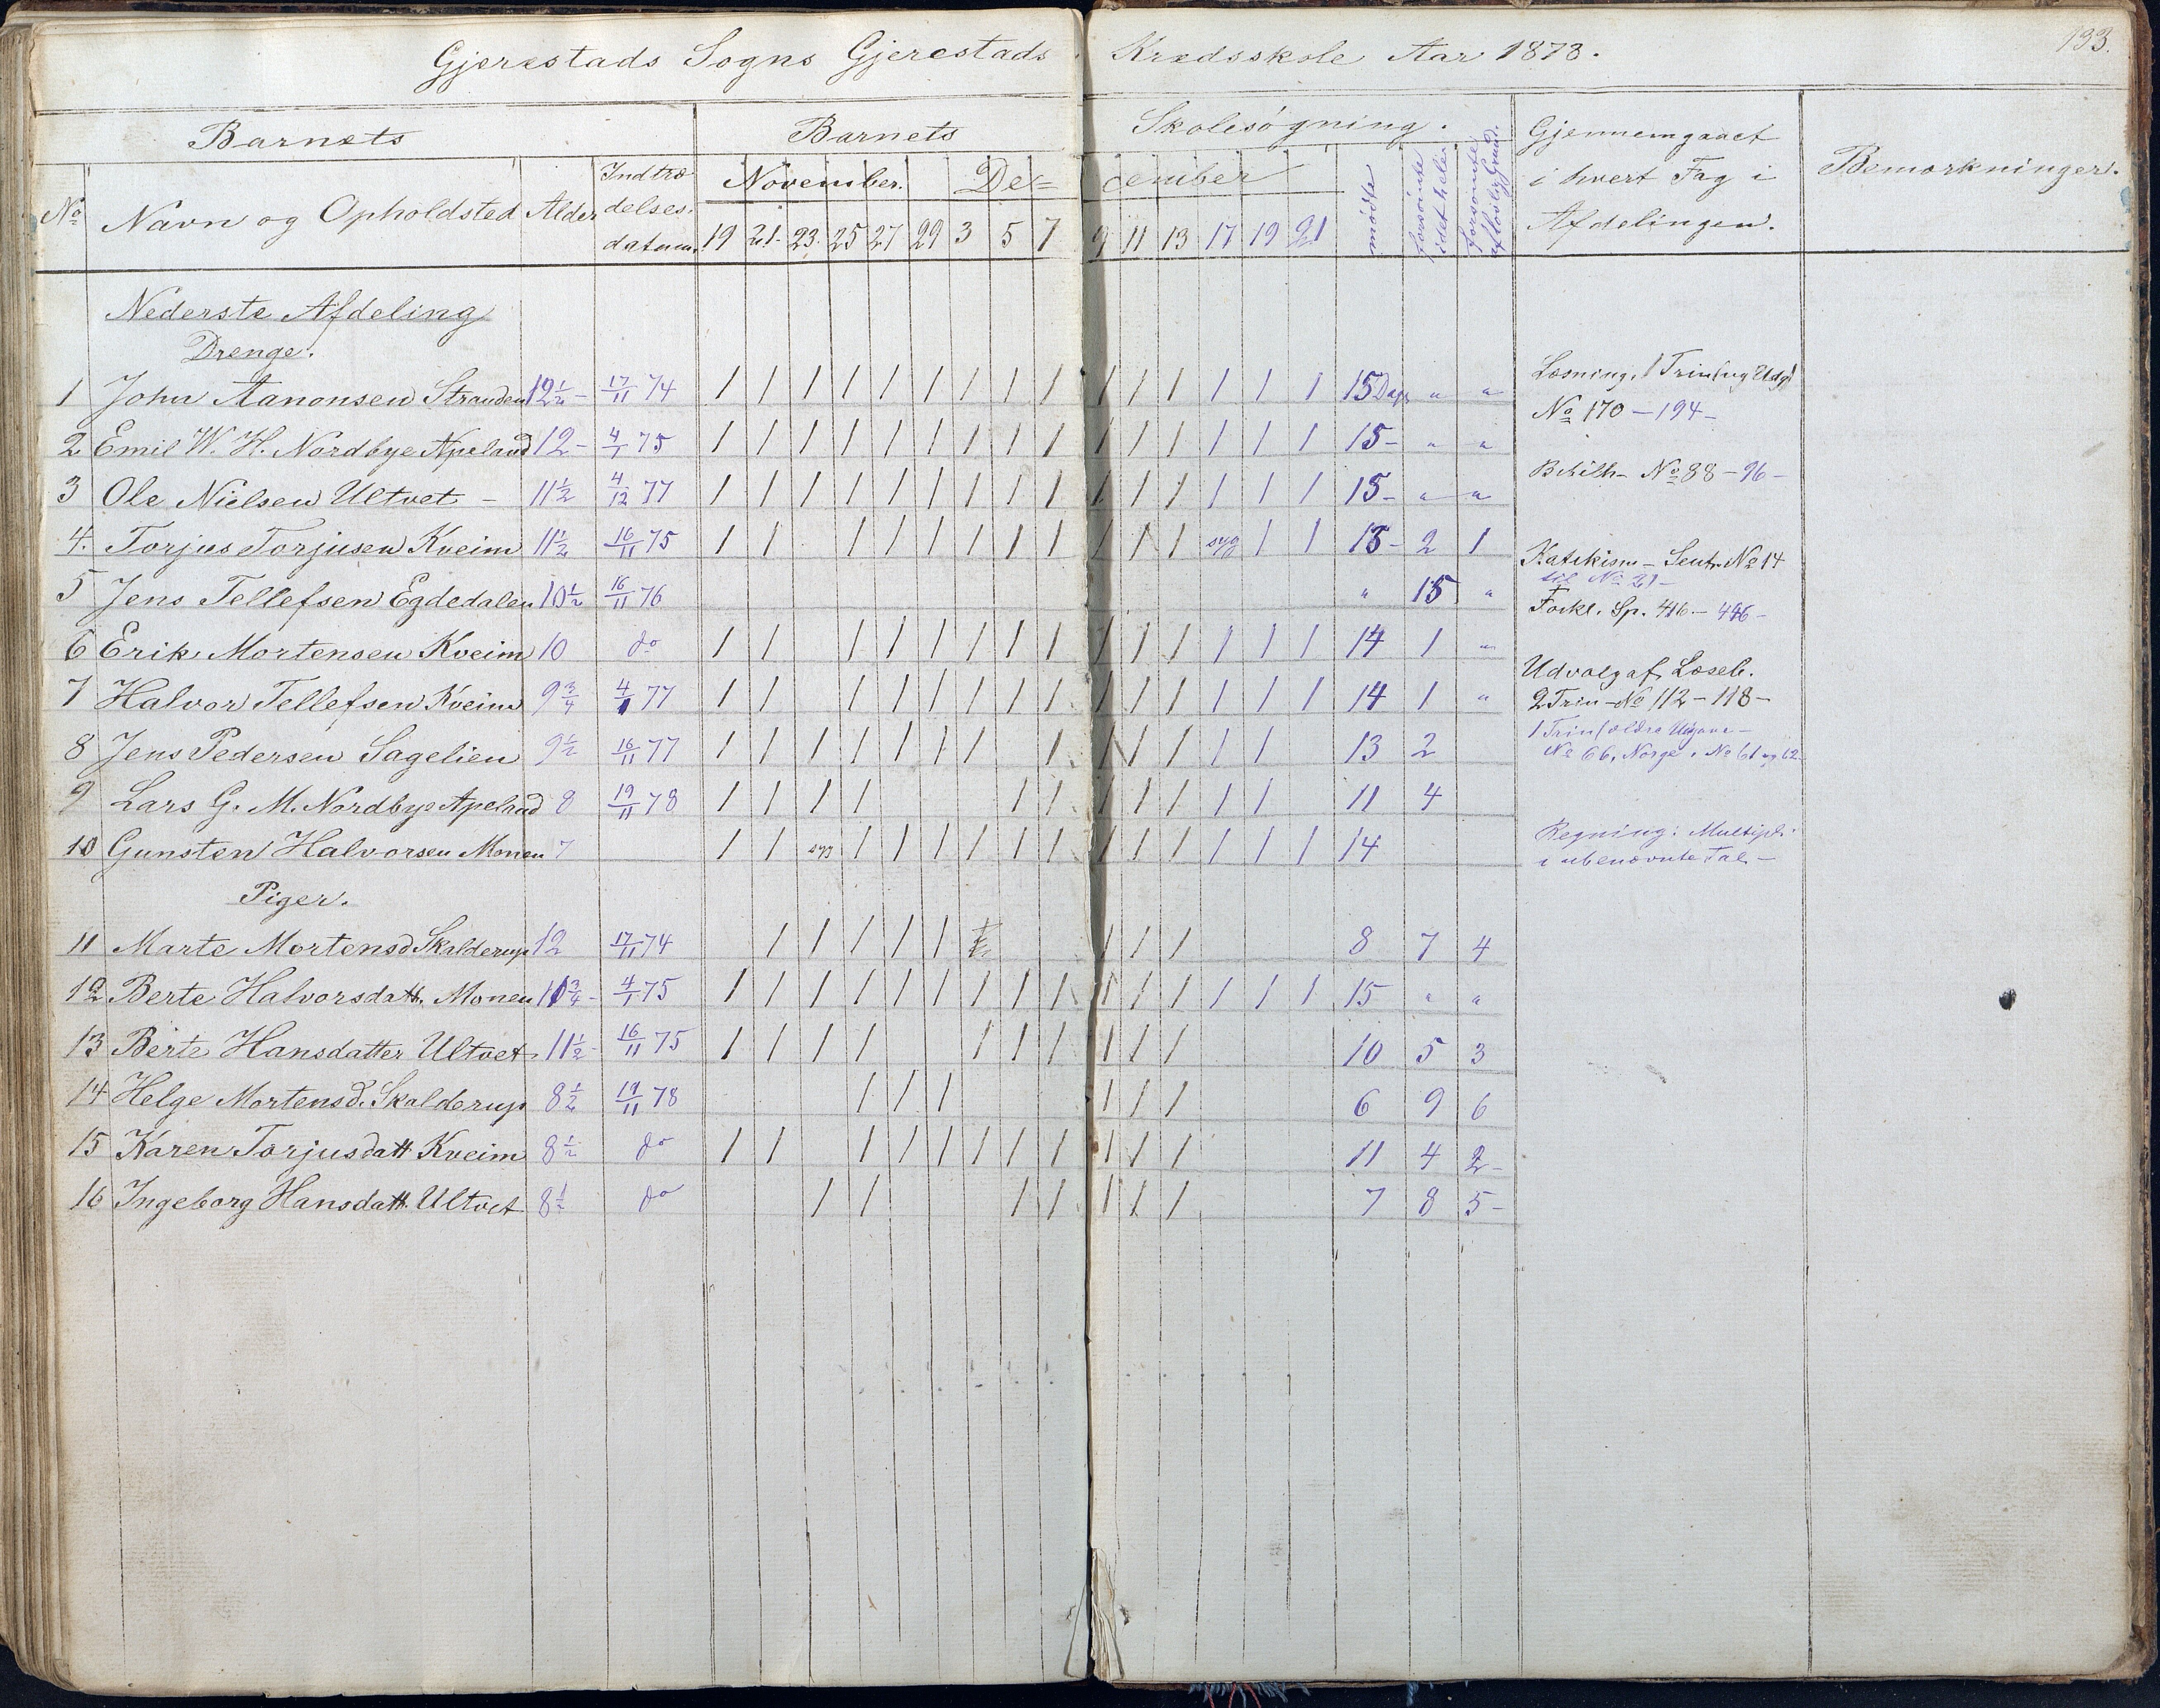 133.
Gjerestads Sogns Gjerestads Kredsskole Aar 1878.
Barnets Barnets Skolesøgning. Gjennemgaaet i hvert Fag i Afdelingen. Bemærkninger.
No Navn og Opholdsted Alder Indtrædelses datum. November. December mødte forsømte i det hele forsømte af lovlig Grund.
19 21 23 25 27 29 3 5 7 9 11 13 17 19 21
Nederste Afdeling
Drenge.
1 John Aanonsen Stranden 12 1/2 - 17/11 74 / / / / / / / / / / / / / / / 15 Dage " "
2 Emil W. H. Nordbye Apeland 12 - 4/1 75 / / / / / / / / / / / / / / / 15 - " "
3 Ole Nielsen Ultvet - 11 1/2 4/12 77 / / / / / / / / / / / / / / / 15 - " "
4. Torjus Torjusen Kveim 11 1/2 16/11 75 / / / / / / / / / / / syg / / 13 - 2 1
5 Jens Tellefsen Egdedalen 10 1/2 16/11 76 " 15 "
6 Erik Mortensen Kveim 10 do / / / / / / / / / / / / / / 14 1 "
7 Halvor Tellefsen Kveim 9 3/4 4/1 77 / / / / / / / / / / / / / / 14 1 "
8 Jens Pedersen Sagelien 9 1/2 16/11 77 / / / / / / / / / / / / / 13 2
9 Lars G. M. Nordbye Apeland 8 19/11 78 / / / / / / / / / / / 11 4
10 Gunsten Halvorsen Monen 7 / / syg / / / / / / / / / / / / 14
Piger.
11 Marte Mortensd Skalderup 12 17/11 74 / / / / / / / / 8 7 4
12 Berte Halvorsdatt. Monen 11 3/4 - 4/1 75 / / / / / / / / / / / / / / / 15 " "
13 Berte Hansdatter Ultvet 11 1/2 - 16/11 75 / / / / / / / / / / 10 5 3
14 Helge Mortensd. Skalderup 8 1/2 19/11 78 / / / / / / 6 9 6
15 Karen Torjusdatt Kveim 8 1/2 do / / / / / / / / / / / 11 4 2 -
16 Ingeborg Hansdatt. Ultvet 8 1/2 do / / / / / / / 7 8 5 -
Læsning, 1 Trin (ny Udg)
No 170 - 194 -
Bibelh - No 88 - 96 -
Katekism - Sentr. No 14
til No 21 -
Forkl. Sp. 416 - 446 -
Udvalg af Læseb.
2 Trin - No 112 - 118 -
1 Trin (ældre Udgave -
No 66, Norge, No 61 og 62
Regning: Multipl.
i ubenævnte Tal -